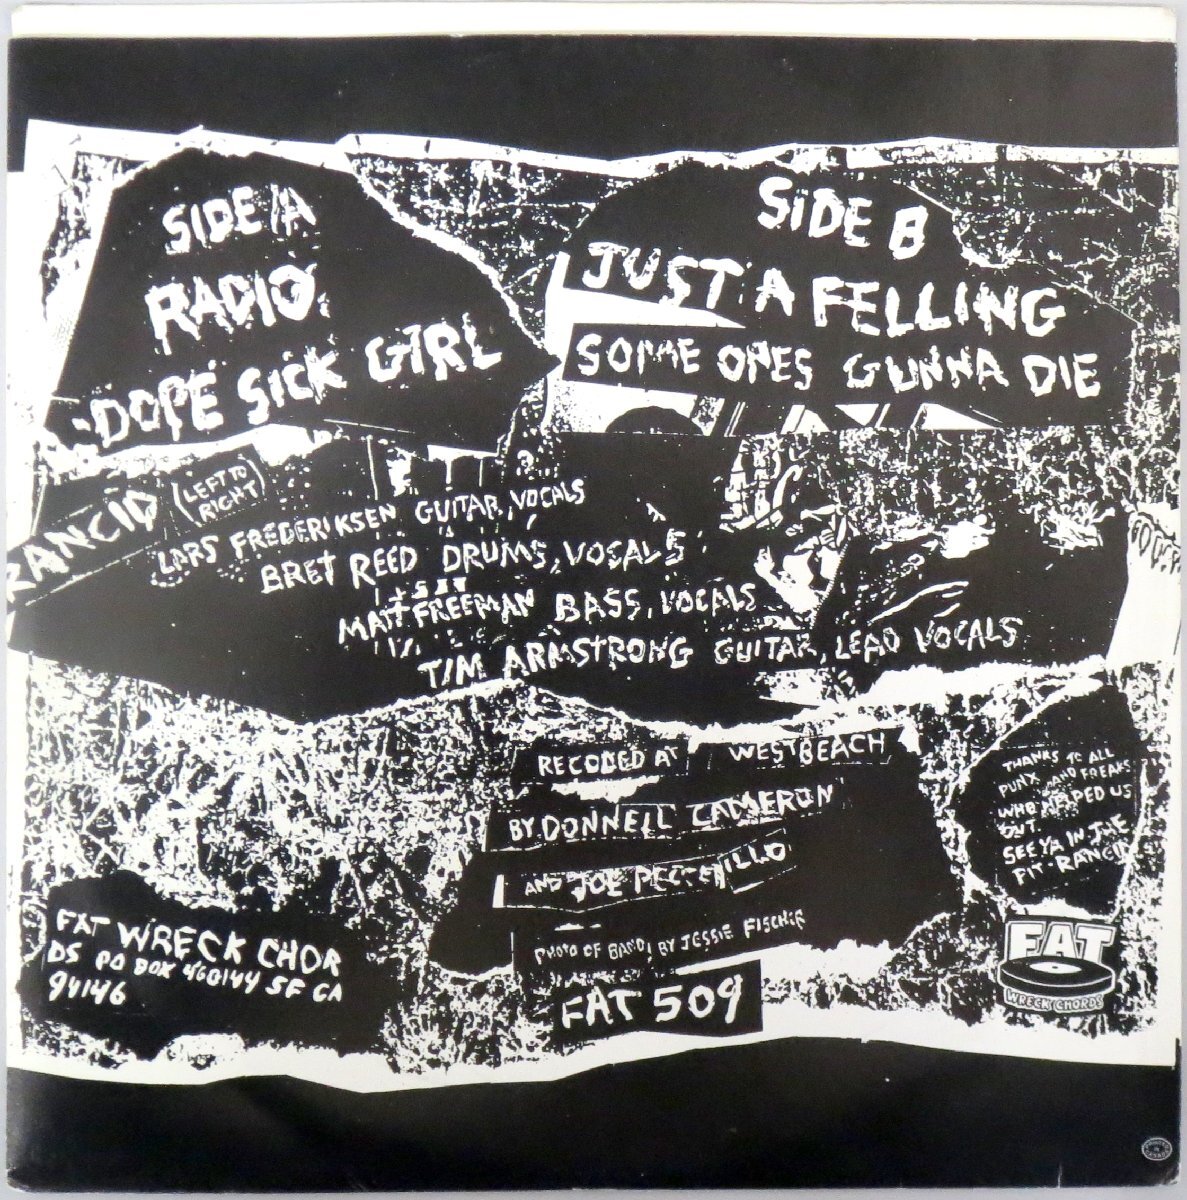 SIDE A
RADIO
DOPE SICK GIRL
SIDE B
JUST A FELLING
SOME ONES GUNNA DIE
RANCID (LEFT TO
RIGHT)
LARS FREDERIKSEN GUITAR, VOCALS
BRET REED DRUMS, VOCALS
MATT FREEMAN BASS, VOCALS
TIM ARMSTRONG GUITAR, LEAD VOCALS
RECODED AT WESTBEACH
BY DONNELL CAMERON
AND JOE PECCERILLO
PHOTO OF BAND BY JESSIE FISCHER
FAT 509
THANKS TO ALL
PUNX AND FREAKS
WHO HELPED US
OUT
SEE YA IN THE
PIT-RANCID
FAT WRECK CHOR
DS PO BOX 460144 SF CA
94146
FAT
WRECK CHORDS